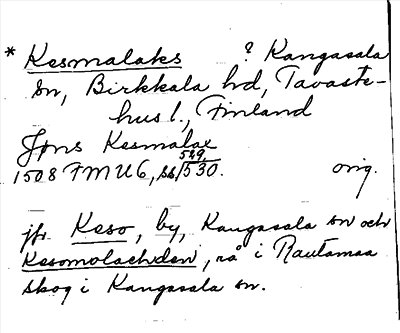 * Kesmalaks ? Kangasala
sn, Birkkala hd, Tavaste-
hus l., Finland
Jöns Kesmalax
529.
1508 FMU6, ss 530. orig.
jfr Keso, by, Kangasala sn och
Kesomolachden, rå i Rautamaa
skog i Kangasala sn.